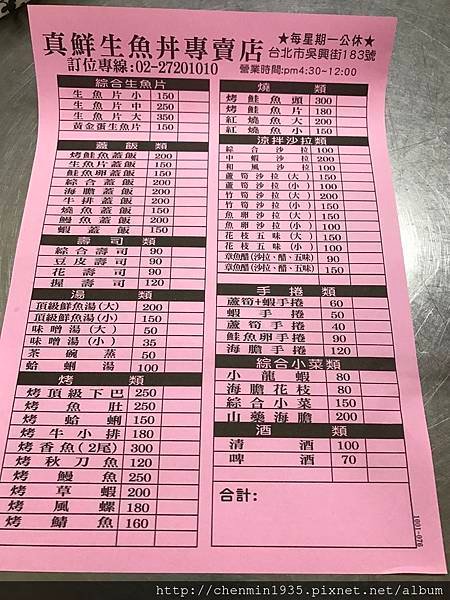 真鮮生魚丼專賣店
訂位專線:02-27201010
★每星期一公休★
台北市吳興街183號
營業時間:pm4:30~12:00
綜合生魚片
生魚片小 150
生魚片中 250
生魚片大 350
黃金蛋生魚片 150
蓋飯類
烤鮭魚蓋飯 200
生魚片蓋飯 150
鮭魚卵蓋飯 200
綜合蓋飯 200
海膽蓋飯 200
牛排蓋飯 200
燒魚蓋飯 200
鰻魚蓋飯 200
蝦蓋飯 200
壽司類
綜合壽司 90
豆皮壽司 90
花壽司 90
握壽司 120
湯類
頂級鮮魚湯(大) 200
頂級鮮魚湯(小) 150
味噌湯(大) 50
味噌湯(小) 35
茶碗蒸 50
蛤蜊湯 100
烤類
烤頂級下巴 250
烤魚肚 250
烤蛤蜊 150
烤牛小排 180
烤香魚(2尾) 300
烤秋刀魚 120
烤鰻魚 250
烤草蝦 200
烤風螺 180
烤鯖魚 160
燒類
烤鮭魚頭 300
烤鮭魚片 180
紅燒魚大 200
紅燒魚小 150
涼拌沙拉類
綜合沙拉 100
中蝦沙拉 200
和風沙拉 100
蘆筍沙拉(大) 150
蘆筍沙拉(小) 100
竹筍沙拉(大) 200
竹筍沙拉(小) 100
魚卵沙拉(大) 150
魚卵沙拉(小) 100
花枝五味(大) 150
花枝五味(小) 100
章魚醋(沙拉、醋、五味) 90
章魚醋(沙拉、醋、五味) 150
手捲類
蘆筍+蝦手捲 60
蝦手捲 50
蘆筍手捲 40
鮭魚卵手捲 90
海膽手捲 120
綜合小菜類
小龍蝦 80
海膽花枝 80
綜合小菜 150
山藥海膽 200
酒類
清酒 100
啤酒 70
合計:
1001-076
http://chenmin1935.pixnet.net/album